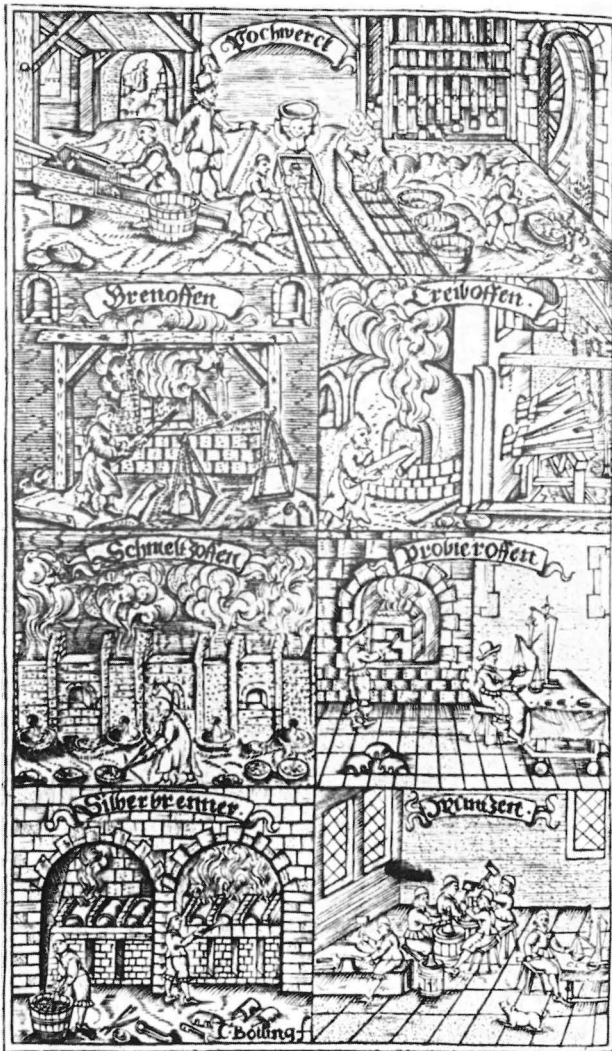 Pochwerck
Brenoffen
Treiboffen.
Schmeltzoffen
Probieroffen
Silberbrenner
Muntzen.
C. Bölling f